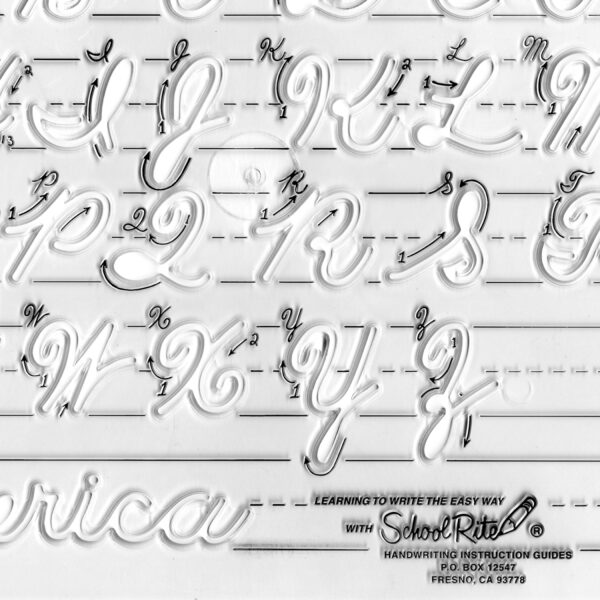 I J K L M
2 1 1 1 2 1 L 1
13
P Q R S T
1 1 1 1
W X Y Z
1 1 2 1 1
erica
LEARNING TO WRITE THE EASY WAY
WITH SchoolRite ®
HANDWRITING INSTRUCTION GUIDES
P.O. BOX 12547
FRESNO, CA 93778